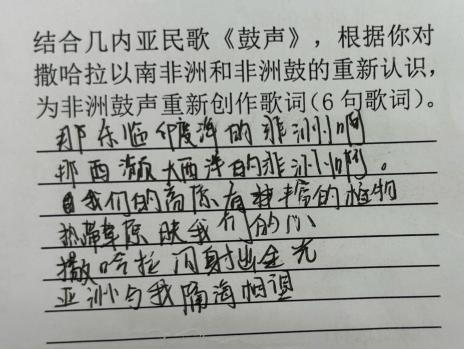 结合几内亚民歌《鼓声》，根据你对
撒哈拉以南非洲和非洲鼓的重新认识，
为非洲鼓声重新创作歌词(6句歌词)。
那东临印度洋的非洲啊
那西濒大西洋的非洲啊。
我们的高原有种丰富的植物
热带草原映我们的心
撒哈拉闪射出金光
亚洲与我隔海相望